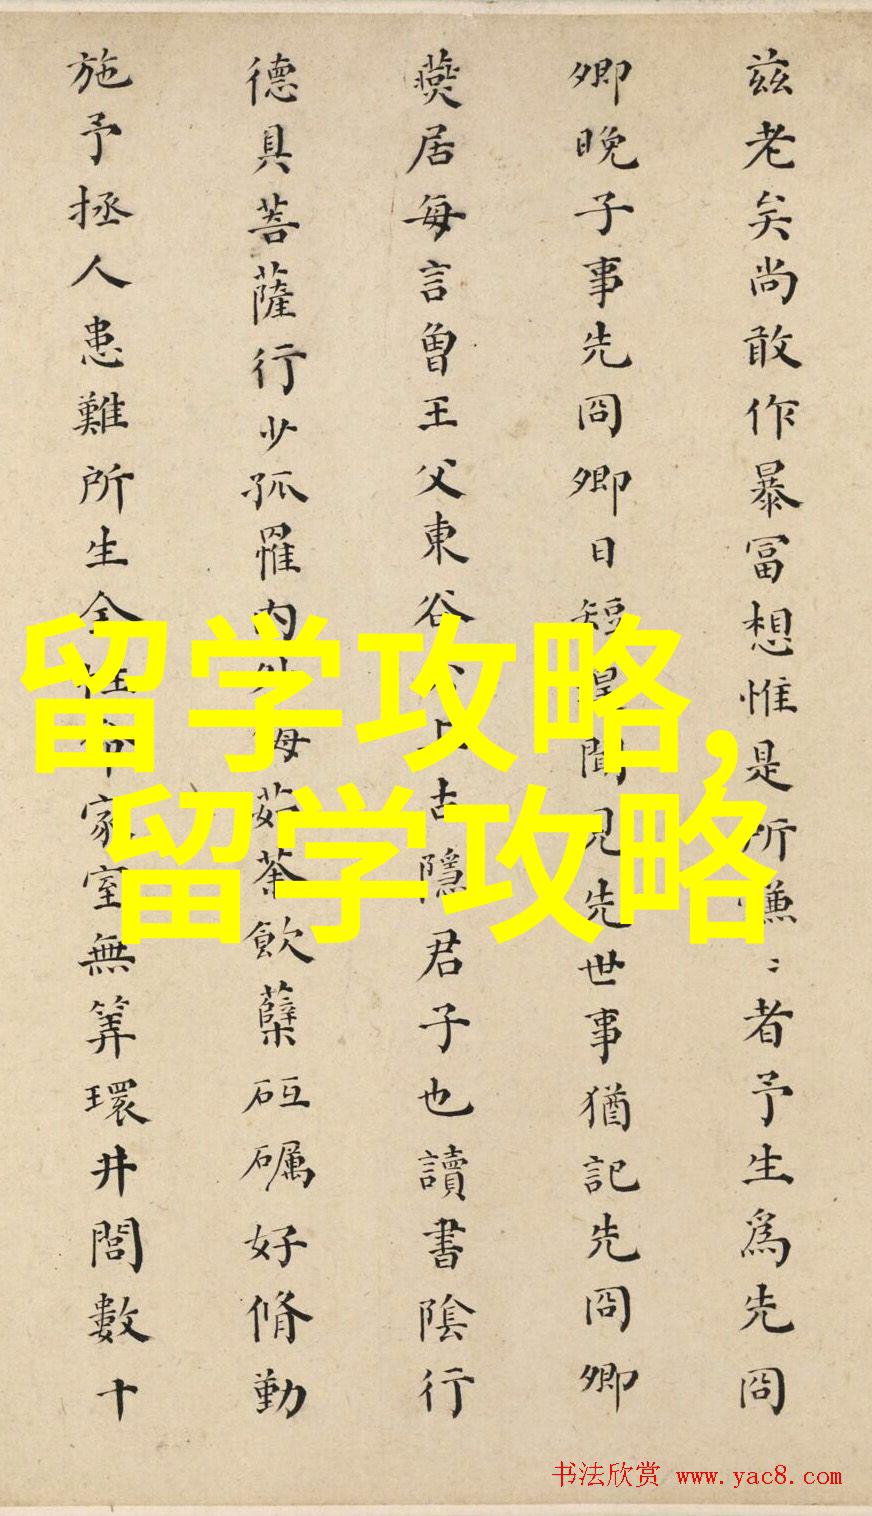 兹老矣尚敢作暴冨想惟是所慊〻者予生爲先冏
卿晚子事先冏卿日短皇聞見先世事猶記先冏卿
燕居每言曾王父東谷公上古隱君子也讀書陰行
德具菩薩行少孤罹内外侮茹荼飲蘖砥礪好脩勤
施予拯人患難所生全性命家室無筭環井閭數十
留学攻略,
留学攻略
书法欣赏 www.yac8.com